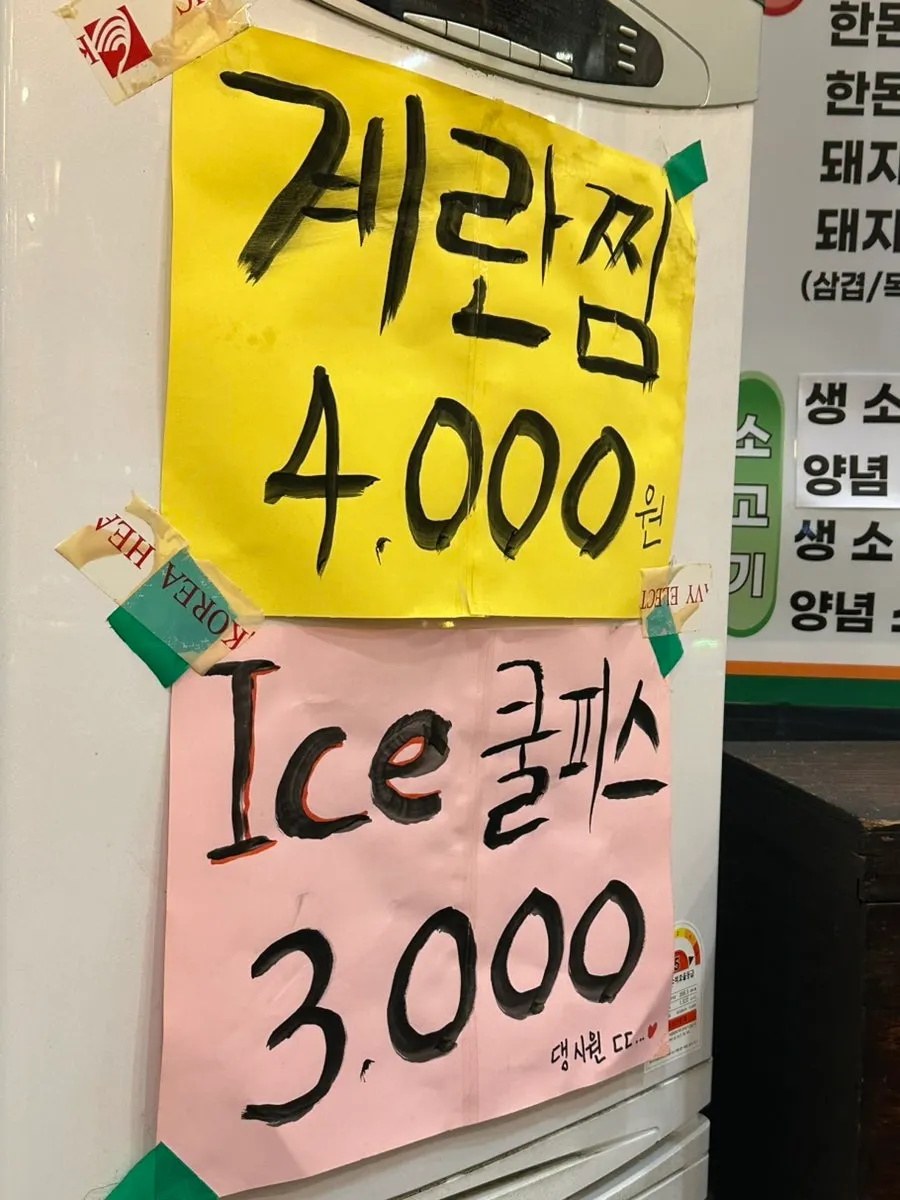 계란찜
4,000원
Ice 쿨피스
3,000
댕시원 ㄷㄷ...♥
KOREA HEA
AVY ELECT
한돈
한돈
돼지
돼지
(삼겹/목
소고기
생 소
양념
생 소
양념 소